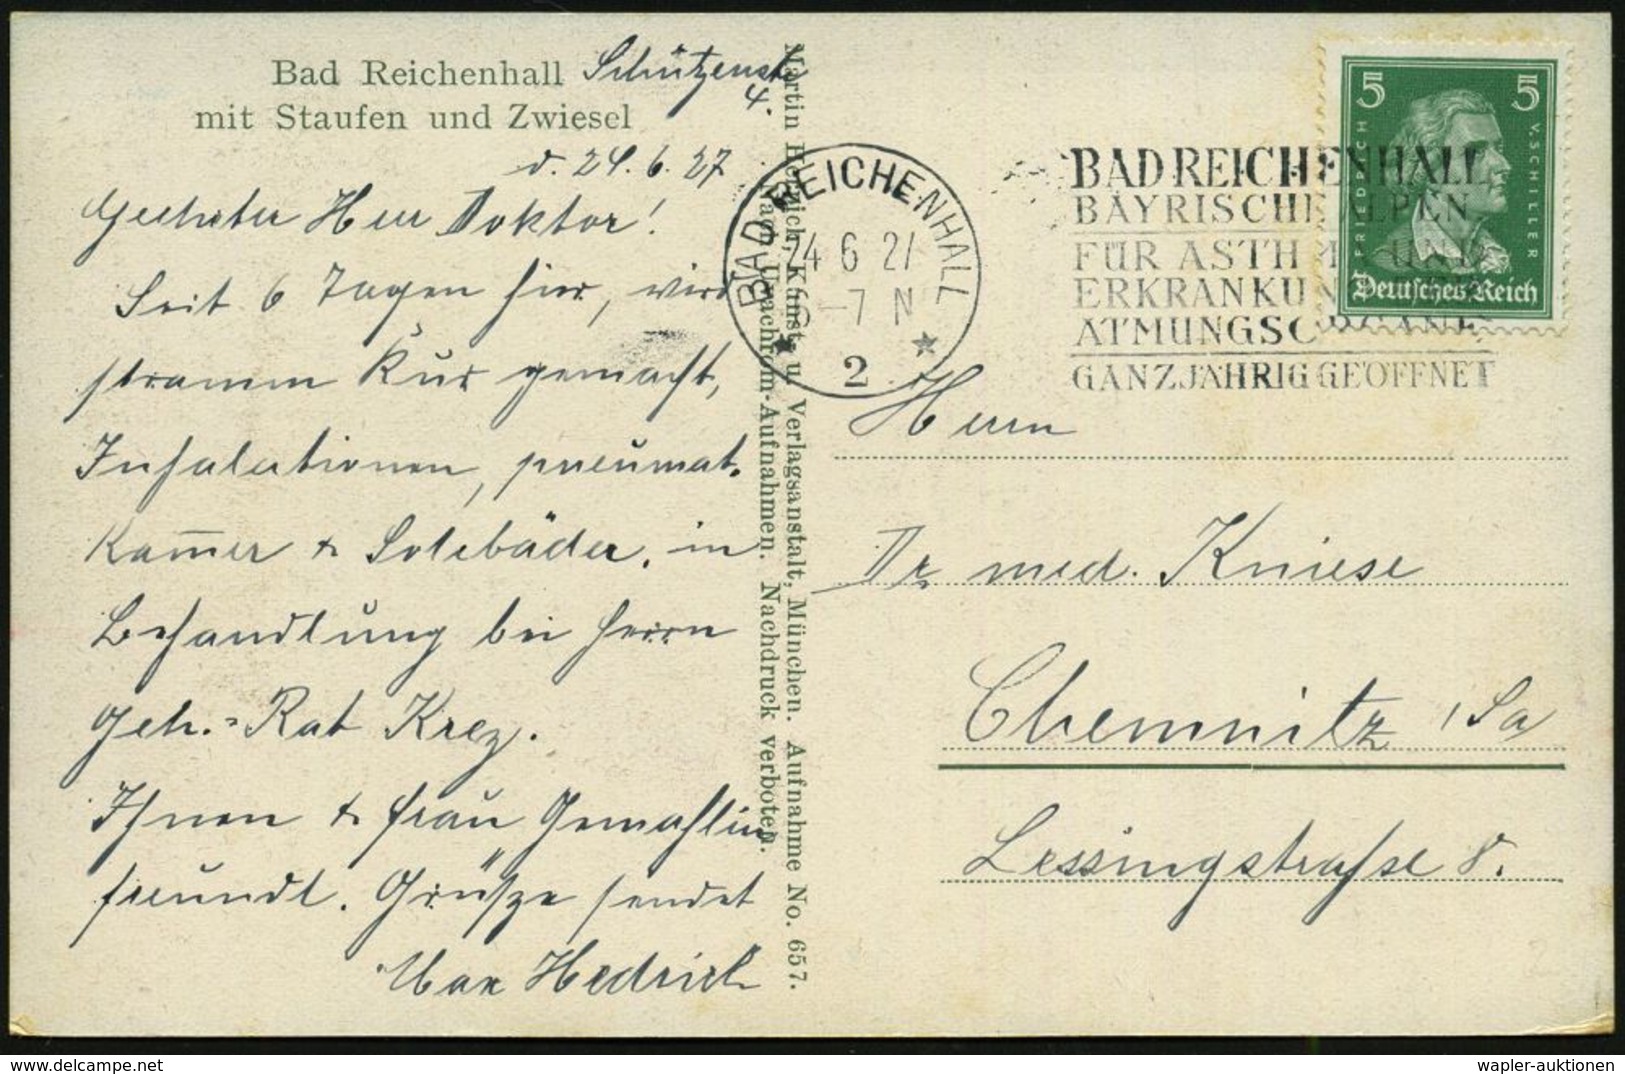 Bad Reichenhall Schützenstr.
4.
mit Staufen und Zwiesel
d. 24.6.27
Geehrter Herr Doktor!
Seit 6 Tagen hier, wird
stramm Kur gemacht,
Inhalationen, pneumat.
Kam̅er & Solebäder, in
Behandlung bei Herrn
Geh.-Rat Krez.
Ihnen & Frau Gemahlin
freundl. Grüße sendet
Max Hedrich
Martin Herpich, Kunst- u. Verlagsanstalt, München. Aufnahme No. 657.
Nach Uvachrom-Aufnahmen. Nachdruck verboten.
BAD REICHENHALL
24 6 27
6-7 N
2
BAD REICHENHALL
BAYRISCHE ALPEN
FÜR ASTHMA UND
ERKRANKUN
ATMUNGSORGANE
GANZJÄHRIG GEÖFFNET
5 5
FRIEDRICH V. SCHILLER
Deutsches Reich
Herrn
Dr med. Kniese
Chemnitz, Sa
Lessingstraße 8.
wapler-auktionen